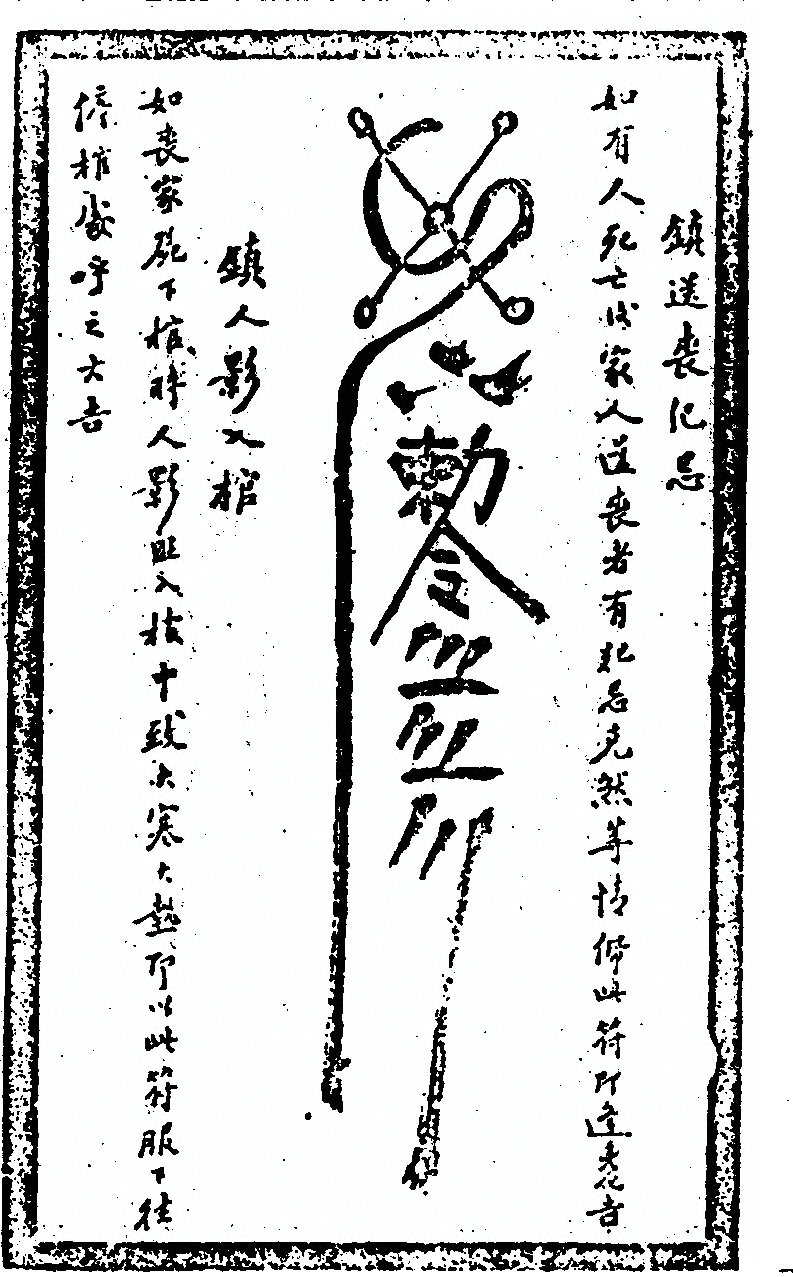 鎮送喪犯忌
如有人死亡或家人送喪者有犯忌克然等情佩此符即逢老化吉
勅令
鎮人影入棺
如喪家死下棺時人影照入棺中致大寒大熱即以此符服下往
停棺處呼之大吉